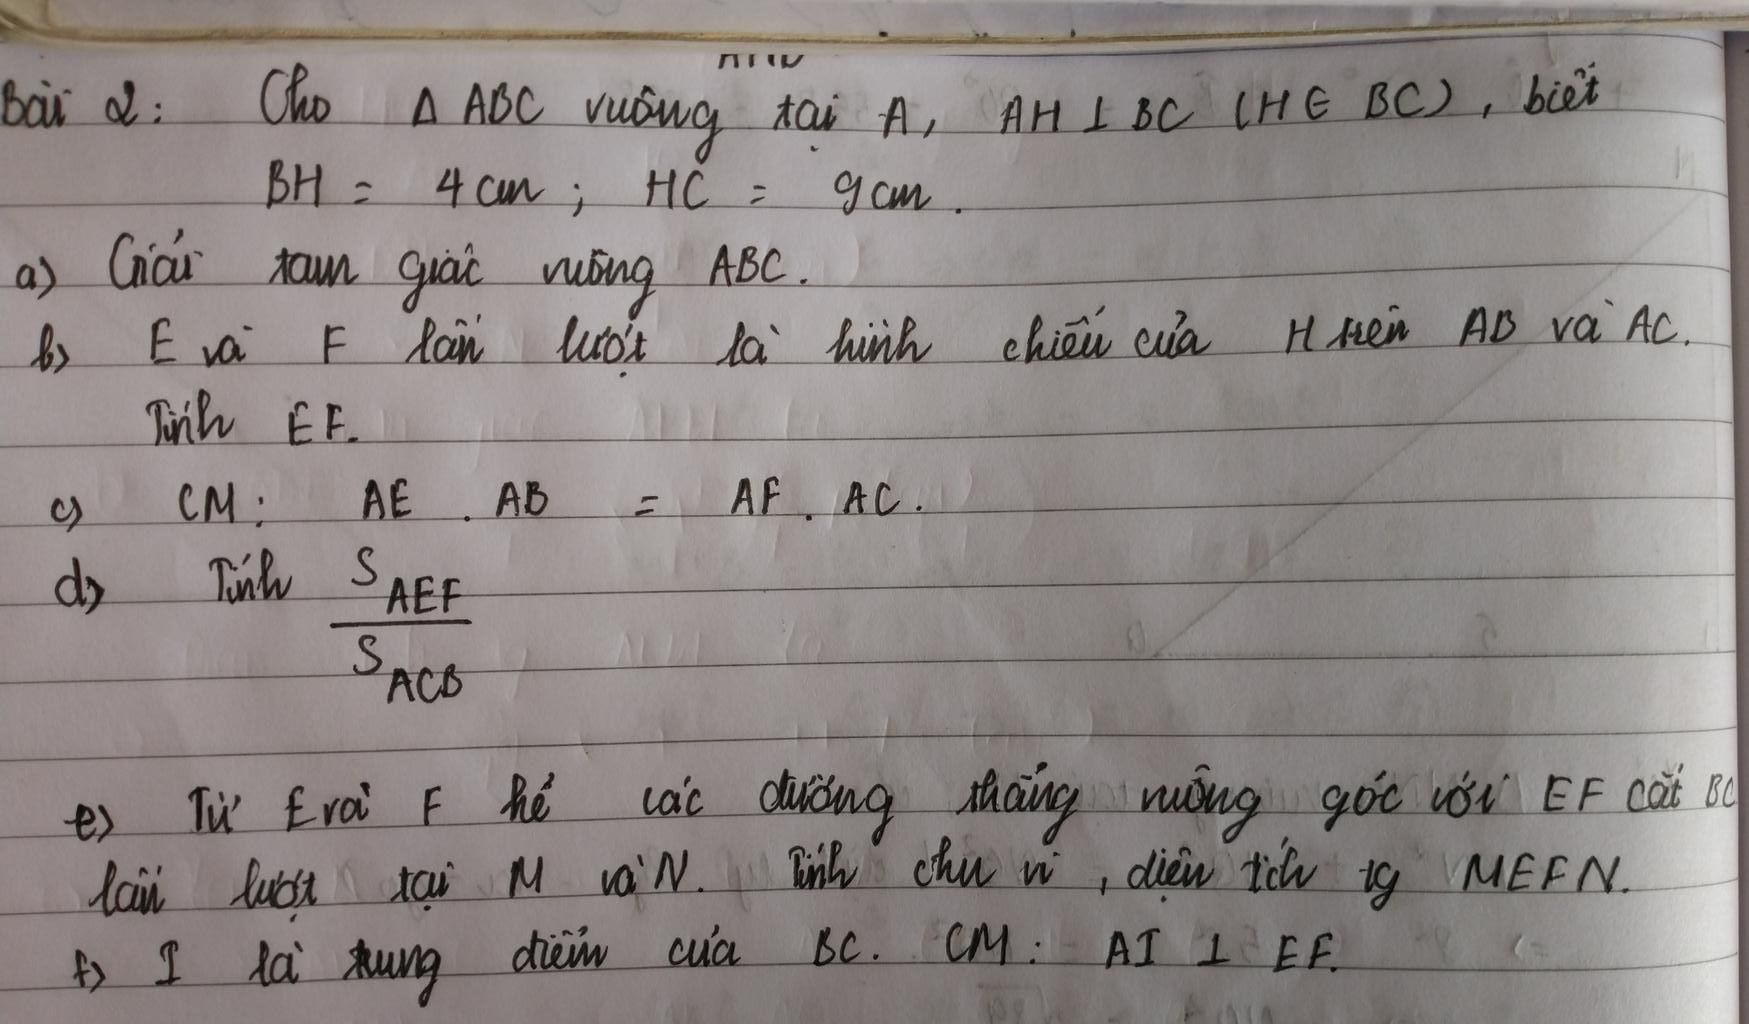 Bài 2: Cho Δ ABC vuông tại A, AH ⊥ BC (H ∈ BC), biết
BH = 4 cm ; HC = 9 cm.
a) Giải tam giác vuông ABC.
b) E và F lần lượt là hình chiếu của H trên AB và AC.
Tính EF.
c) CM: AE . AB = AF . AC.
d) Tính S AEF
S ACB
e) Từ E và F kẻ các đường thẳng vuông góc với EF cắt BC
lần lượt tại M và N. Tính chu vi, diện tích tg MEFN.
f) I là trung điểm của BC. CM: AI ⊥ EF.